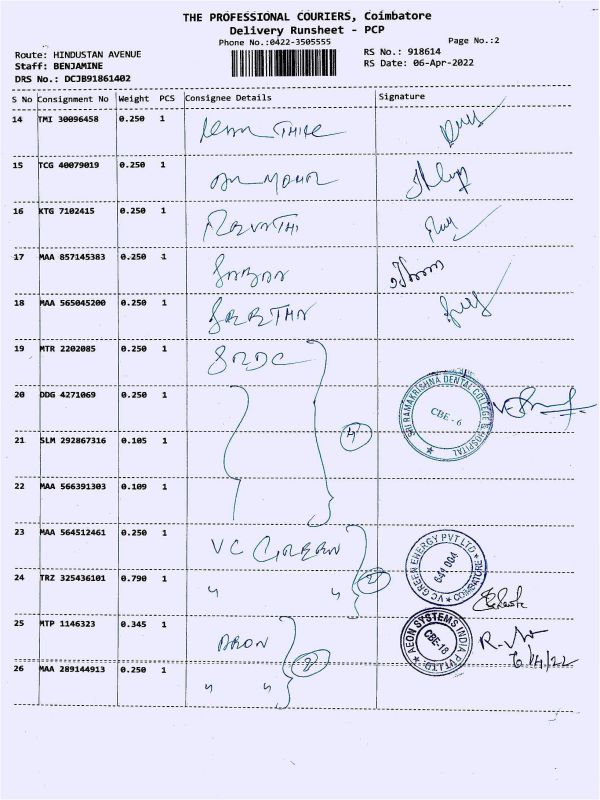 THE PROFESSIONAL COURIERS, Coimbatore
Delivery Runsheet - PCP
Phone No.:0422-3505555
Page No.:2
Route: HINDUSTAN AVENUE
Staff: BENJAMINE
DRS No.: DCJB91861402
RS No.: 918614
RS Date: 06-Apr-2022
S No Consignment No Weight PCS Consignee Details Signature
14 TMI 30096458 0.250 1
15 TCG 40079019 0.250 1
16 KTG 7102415 0.250 1 REVATHI
17 MAA 857145383 0.250 1
18 MAA 565045200 0.250 1
19 MTR 2202085 0.250 1 SRDC
20 DDG 4271069 0.250 1
SRI RAMAKRISHNA DENTAL COLLEGE & HOSPITAL
CBE - 6
21 SLM 292867316 0.105 1 4
22 MAA 566391303 0.109 1
23 MAA 564512461 0.250 1 VC GREEN
VC GREEN ENERGY PVT LTD
641 004
COIMBATORE
24 TRZ 325436101 0.790 1 " " 2
25 MTP 1146323 0.345 1 AEON
AEON SYSTEMS INDIA PVT LTD
CBE-18
6/4/22
26 MAA 289144913 0.250 1 " " 2